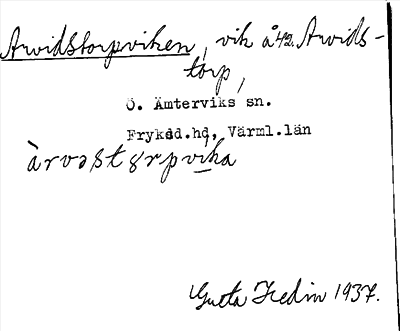 Arvidstorpviken, vik å 42. Arvids-
torp,
Ö. Ämterviks sn.
Fryksd.hd, Värml.län
àrvəstɤrpvika
Gutta Hedin 1937.